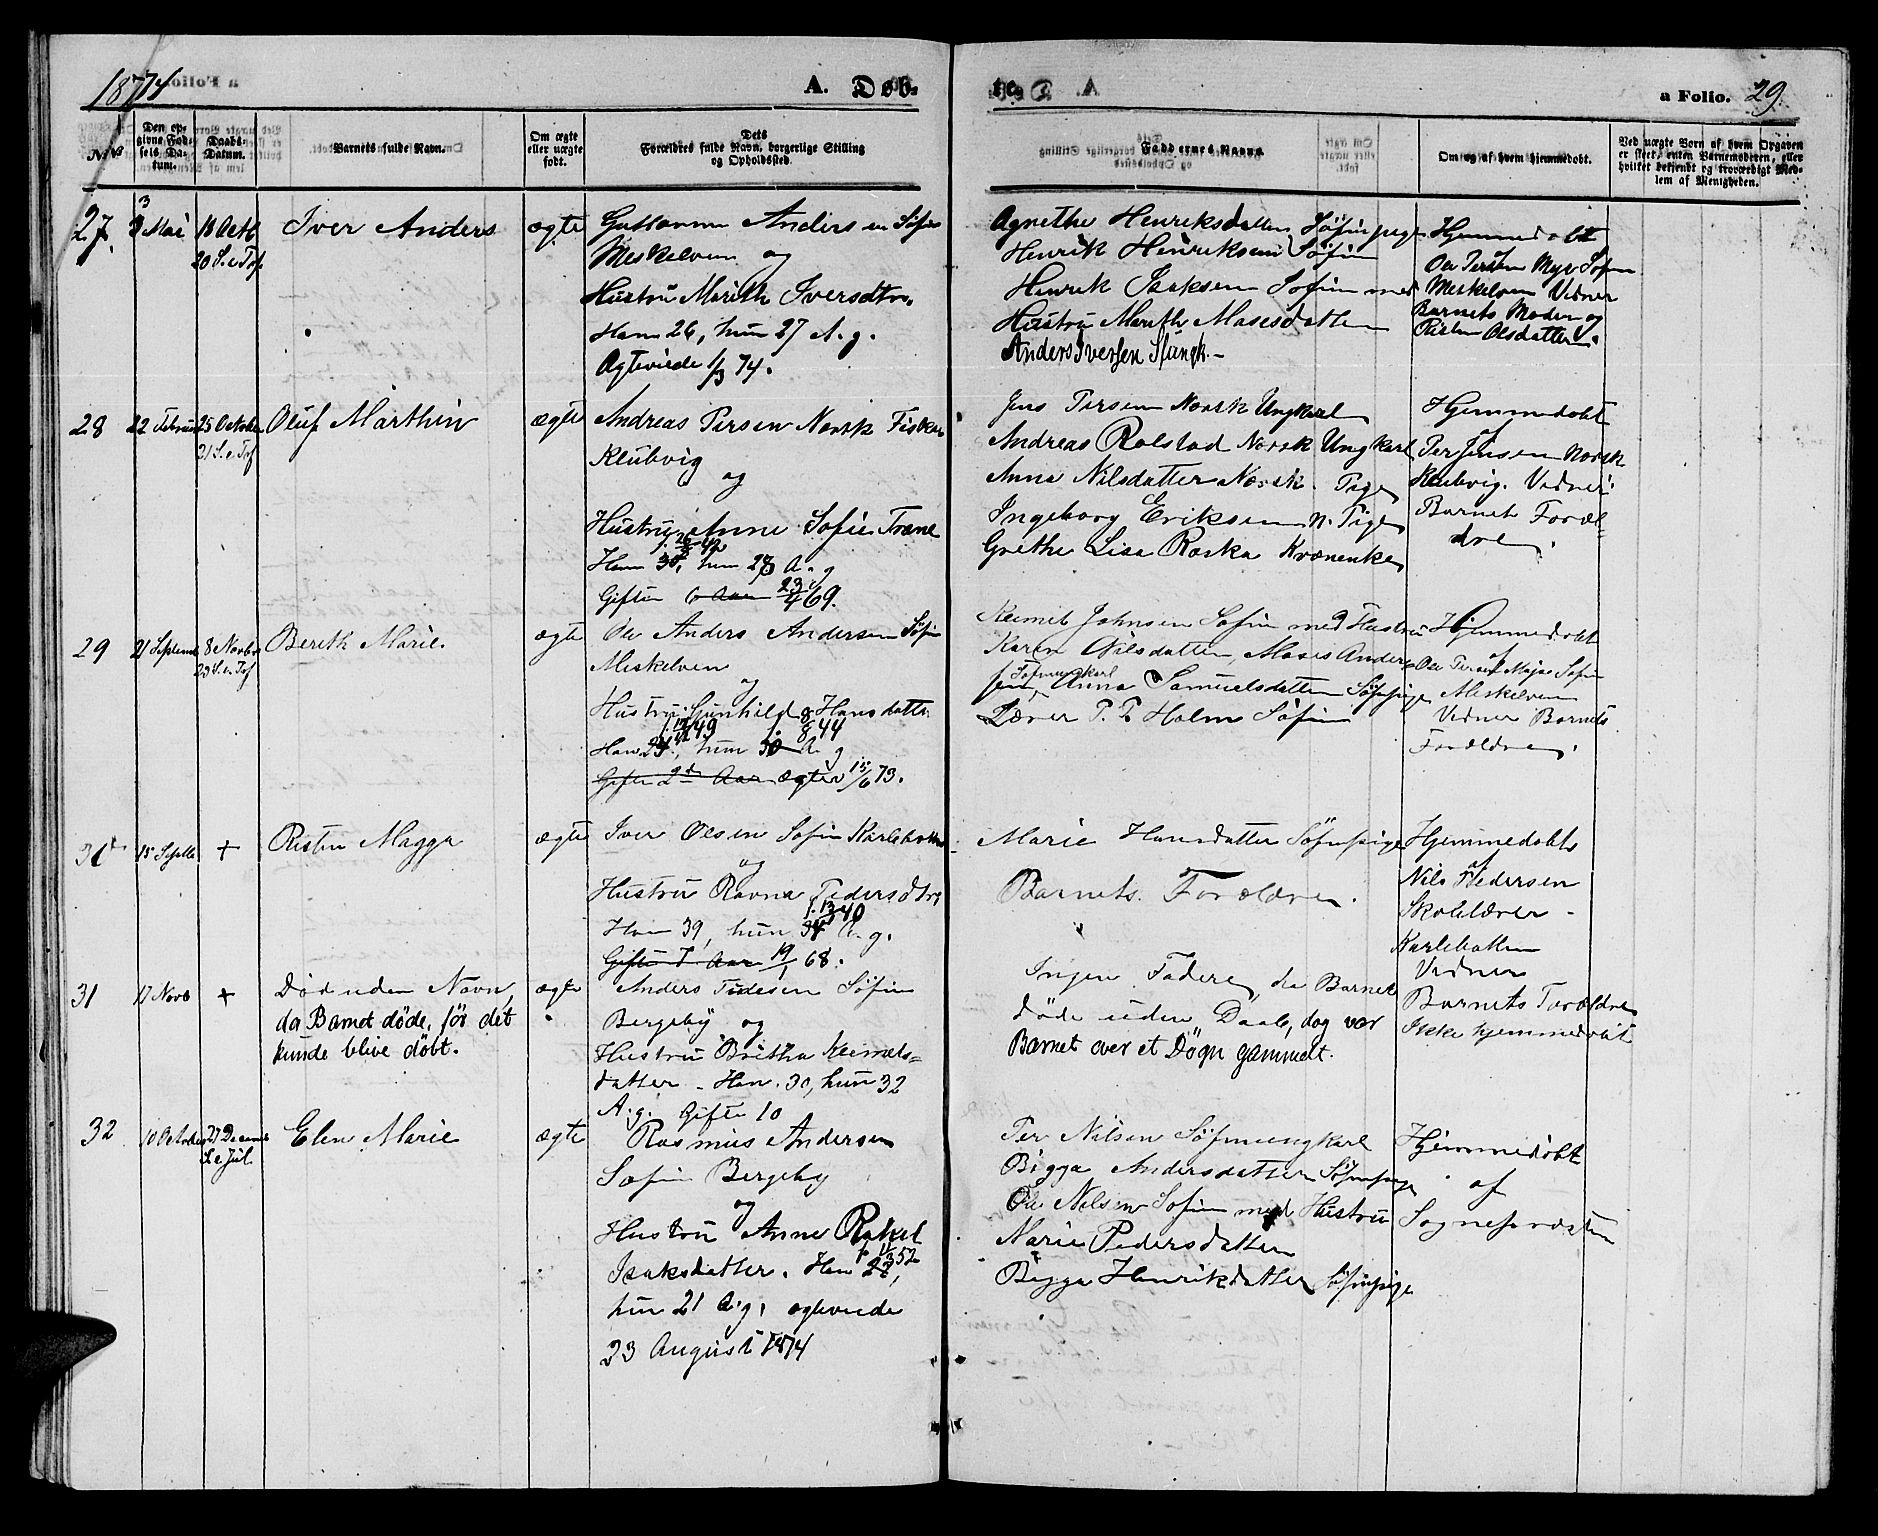 1874
A. Døb-
te.
a Folio. 29.
No.
Den op-
givne Fød-
sels Da-
tum.
Daabs-
Datum.
Barnets fulde Navn.
Om ægte
eller uægte
født.
Dets
Forældres fulde Navn, borgerlige Stilling
og Opholdssted.
Faddernes Navne.
Om og af hvem hjemmedøbt.
Ved uægte Børn af hvem Opgaven
er skeet, enten Barnemoderen, eller
hvilket bekjendt og troværdigt Med-
lem af Menigheden.
27.
3 Mai
18 Octb
20 S.e.Tref
Iver Anders
ægte
Anders en Søfin
Meskelven og
Hustru Marith Iversdtr.
Ham 26, hun 27 A. g.
Ægteviede 1/3 74.
Agnethe Henriksdatter Søfinpige
Henrik Henriksen Søfin
Henrik Isaksen Søfin med
Hustru Marith Mosesdatter
Anders Iversen
Hjemmedøbt
af
Ole Persen Myr Søfin
Meskelven Vidner
Barnets Moder og
Risten Olsdatter.
28
22 Februar
25 October
21 S.e.Tref
Oluf Marthin
ægte
Andreas Persen Norsk Fisker
Klubvig
og
Hustru Anne Sofie Trane
Ham 30, hun 28 A. g
Gifte 6 Aar 23/4 69.
Jens Persen Norsk Ungkarl
Andreas Rolstad Norsk Ungkarl
Anna Nilsdatter Norsk Pige
Ingeborg Eriksen N. Pige
Grethe Lisa Roska Kvænenke
Hjemmedøbt
af
Per Jensen Norsk
Klubvig. Vidner
Barnets Foræl-
dre.
29
21 Septemb
8 Novbr
23 S.e.Tref
Berith Marie.
ægte
Ole Anders Andersen Søfin
Meskelven
og
Hustru Gunhild Hansdatter
49
8/8 44
Ham 24, hun 30 A. g
Gifte 2 Aar Ægtev 15/6 73.
Johnsen Søfin med Hustru
Karen Nilsdatter, Moses Ander-
sen Søfinungkarl, Anna Samuelsdatter Søfinpige
Lærer P. P. Holm Søfin
Hjemmedøbt
af
Ole Persen Søfin
Meskelven
Vidner Barnets
Forældre.
30
15 Septbr
+
Risten Magga
ægte
Iver Olsen Søfin Karlebotten
og
Hustru Ravna Pedersdtr.
40
Ham 39, hun 34 A. g.
Gifte 7 Aar 19/1 68.
Marie Hansdatter Søfinpige
Barnets Forældre.
Hjemmedøbt
af
Nils Pedersen
Skolelærer
Karlebotten
Vidner
Barnets Forældre
31
17 Novb
+
Død uden Navn,
da Barnet døde, før det
kunde blive døbt.
ægte
Anders Søfin
Bergeby og
Hustru Britha
datter. Ham 30, hun 32
A. g. Gifte 10
Ingen Faddere, da Barnet
døde uden Daab, dog var
Barnet over et Døgn gammelt.
Ikke hjemmedøbt
32
10 October
27 Decemb
S.e.Jul.
Elen Marie
ægte
Rasmus Andersen
Søfin Bergeby
og
Hustru Anne Rakel
Isaksdatter. Ham 22,
hun 21 A. g. ægteviede
23 August 1874
Per Nilsen Søfinungkarl
Bigga Andersdatter Søfinpige
Ole Nilsen Søfin med Hustru
Marie Pedersdatter
Bigga Henriksdatter Søfinpige
Hjemmedøbt
af
Sognepræsten